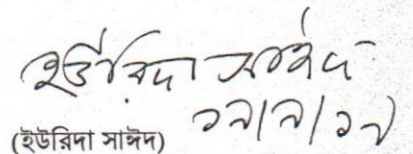 ইউরিদা সাঈদ
১৯/৯/১৭
(ইউরিদা সাঈদ)